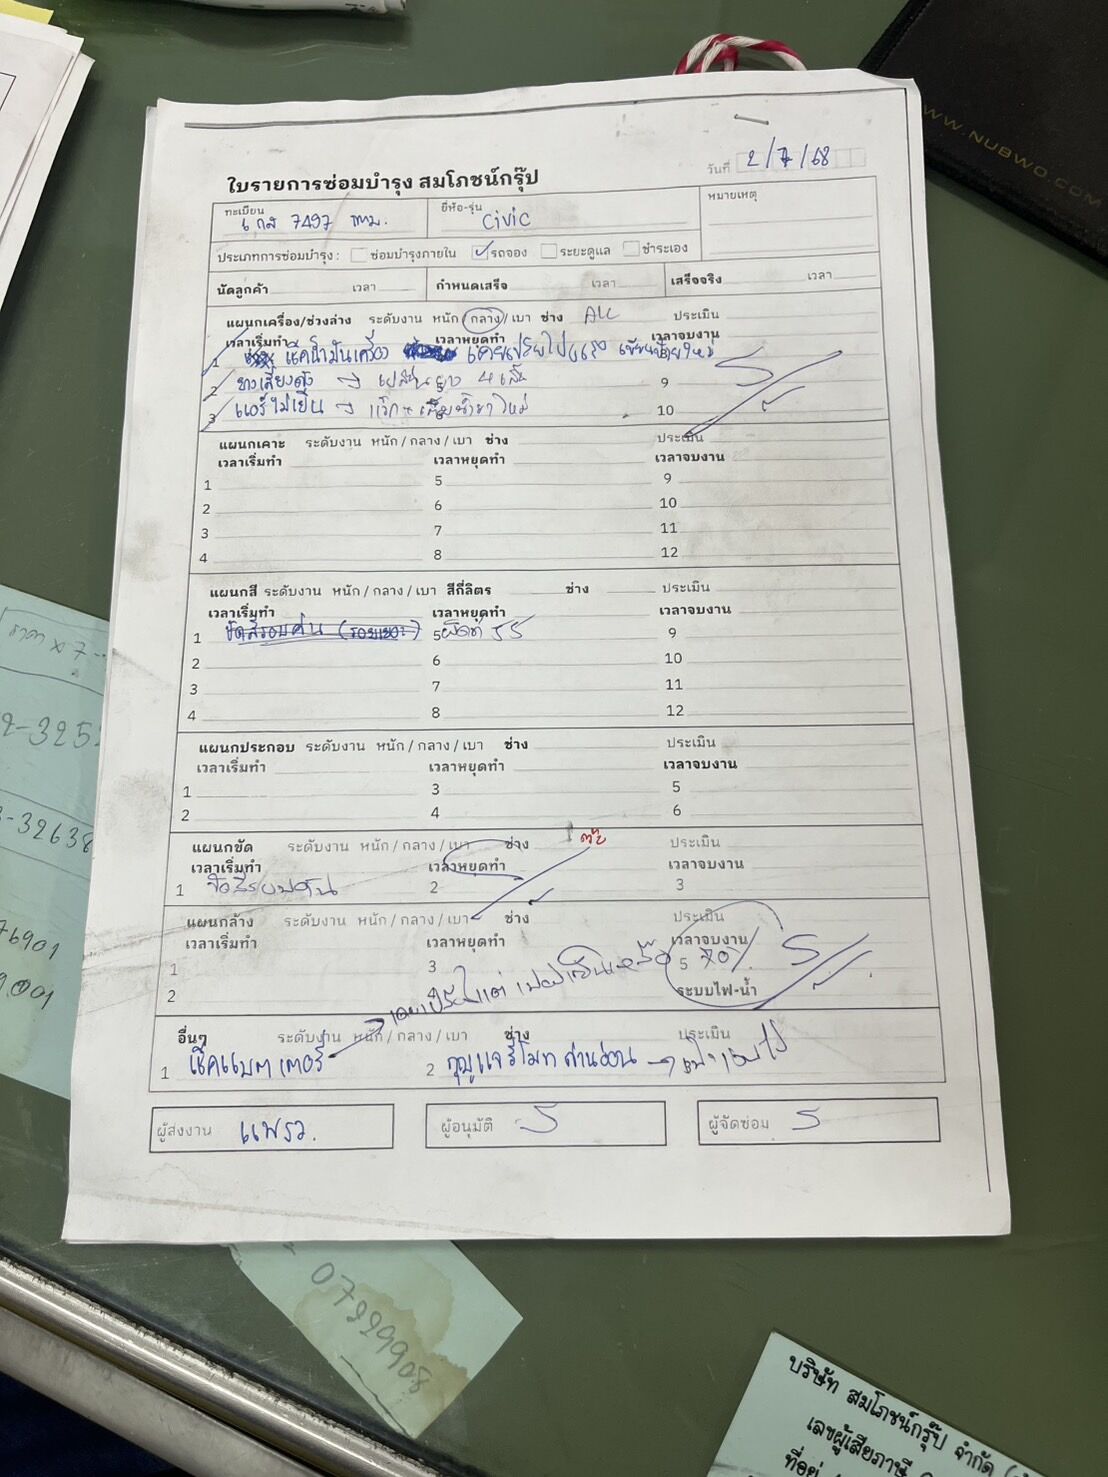 วันที่ 2/7/68
ใบรายการซ่อมบำรุง สมโภชน์กรุ๊ป
ทะเบียน 7497 กทม.
ยี่ห้อ-รุ่น civic
หมายเหตุ
ประเภทการซ่อมบำรุง : ซ่อมบำรุงภายใน รถจอง ระยะดูแล ชำระเอง
นัดลูกค้า เวลา กำหนดเสร็จ เวลา เสร็จจริง เวลา
แผนกเครื่อง/ช่วงล่าง ระดับงาน หนัก / กลาง / เบา ช่าง ประเมิน
เวลาเริ่มทำ เวลาหยุดทำ เวลาจบงาน
1 เช็คน้ำมันเครื่อง
2 ยางเสียงดัง → เปลี่ยนยาง 4 เส้น 9
3 แอร์ไม่เย็น → 10
แผนกเคาะ ระดับงาน หนัก / กลาง / เบา ช่าง ประเมิน
เวลาเริ่มทำ เวลาหยุดทำ เวลาจบงาน
1 5 9
2 6 10
3 7 11
4 8 12
แผนกสี ระดับงาน หนัก / กลาง / เบา สีกี่ลิตร ช่าง ประเมิน
เวลาเริ่มทำ เวลาหยุดทำ เวลาจบงาน
1 ขัดสีรอบคัน (รอยเยอะ) 5 9
2 6 10
3 7 11
4 8 12
แผนกประกอบ ระดับงาน หนัก / กลาง / เบา ช่าง ประเมิน
เวลาเริ่มทำ เวลาหยุดทำ เวลาจบงาน
1 3 5
2 4 6
แผนกขัด ระดับงาน หนัก / กลาง / เบา ช่าง ประเมิน
เวลาเริ่มทำ เวลาหยุดทำ เวลาจบงาน
1 ขัดสีรอบคัน 2 3
แผนกล้าง ระดับงาน หนัก / กลาง / เบา ช่าง ประเมิน
เวลาเริ่มทำ เวลาหยุดทำ เวลาจบงาน
1 3 5 70%
2 ระบบไฟ-น้ำ
อื่นๆ ระดับงาน หนัก / กลาง / เบา ช่าง ประเมิน
1 เช็คแบตเตอรี่ 2 กุญแจรีโมทถ่านอ่อน
ผู้ส่งงาน แพรว.
ผู้อนุมัติ
ผู้จัดซ่อม
WWW.NUBWO.COM
-32638
76901
07299908
บริษัท สมโภชน์กรุ๊ป จำกัด
เลขผู้เสียภาษี
ที่อยู่